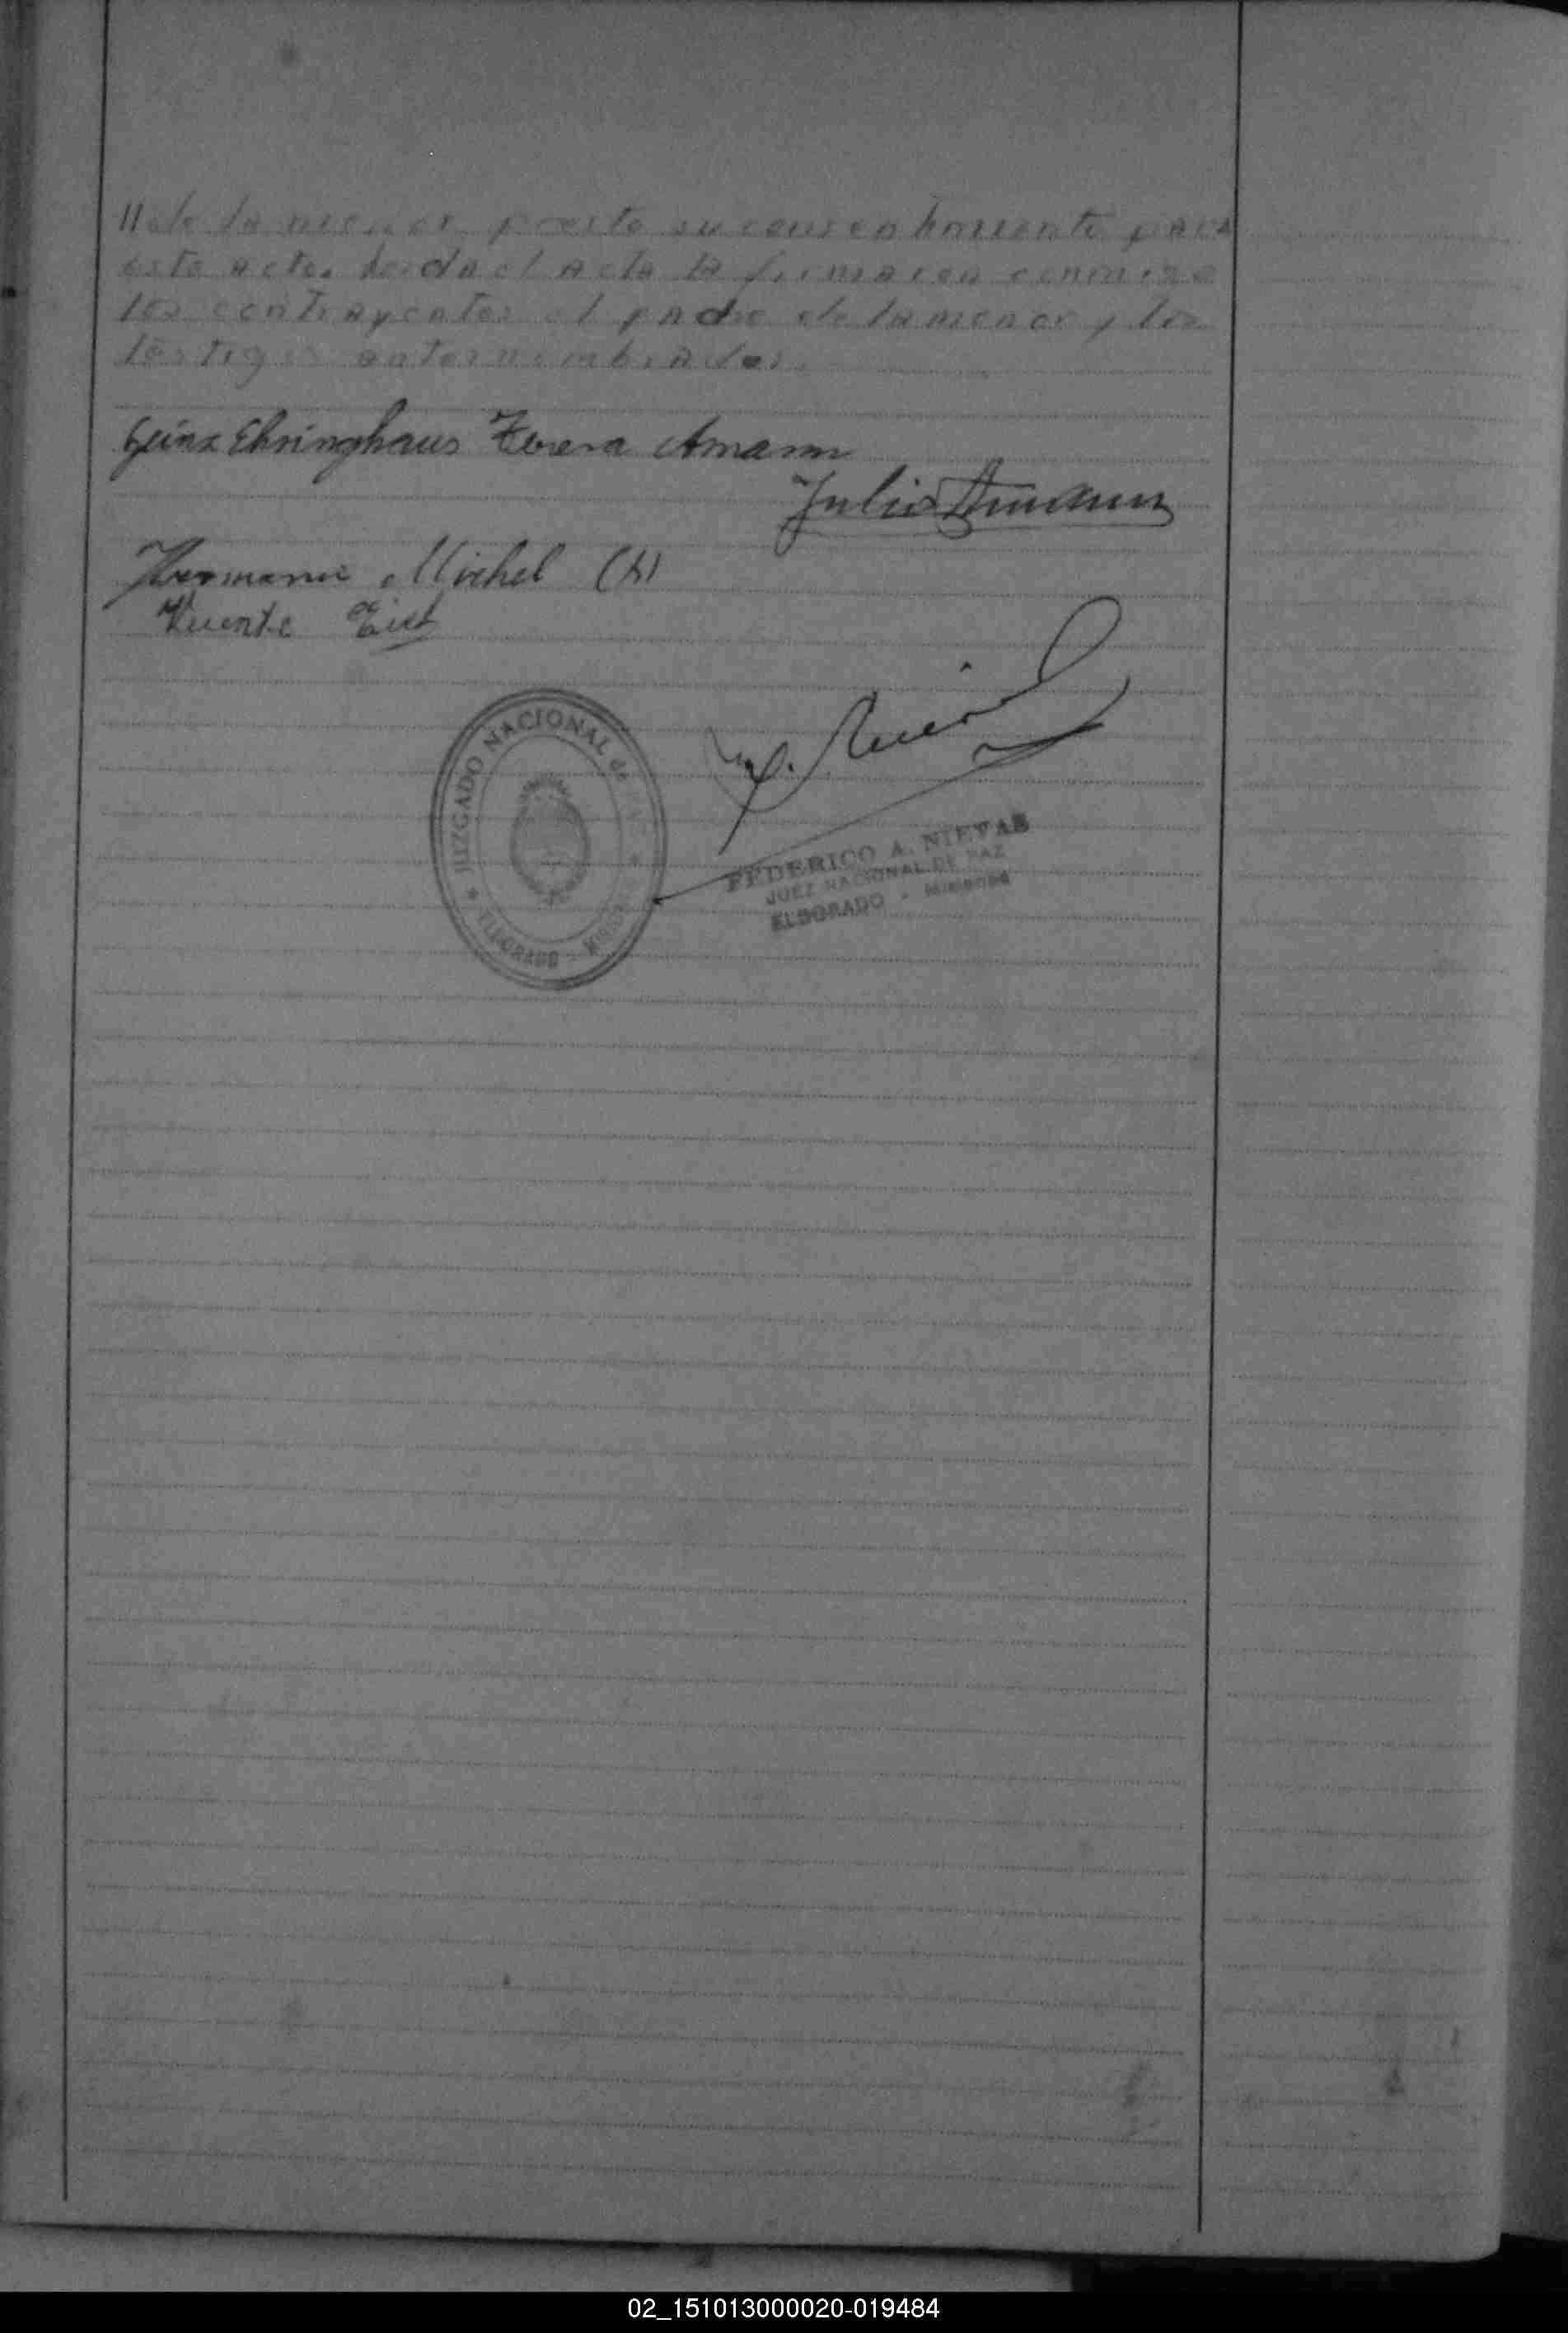 //de la menor presta su consentimiento para
este acto. Leida el acta la firmaron conmigo
los contrayentes el padre de la menor y los
testigos antes nombrados.
Heinz Ehringhaus Teresa Amann
Julio Amann
Hermann Michel (h)
Vicente
JUZGADO NACIONAL de PAZ
ELDORADO - MISIONES
FEDERICO A. NIEVAS
JUEZ NACIONAL DE PAZ
ELDORADO - Misiones
02_151013000020-019484